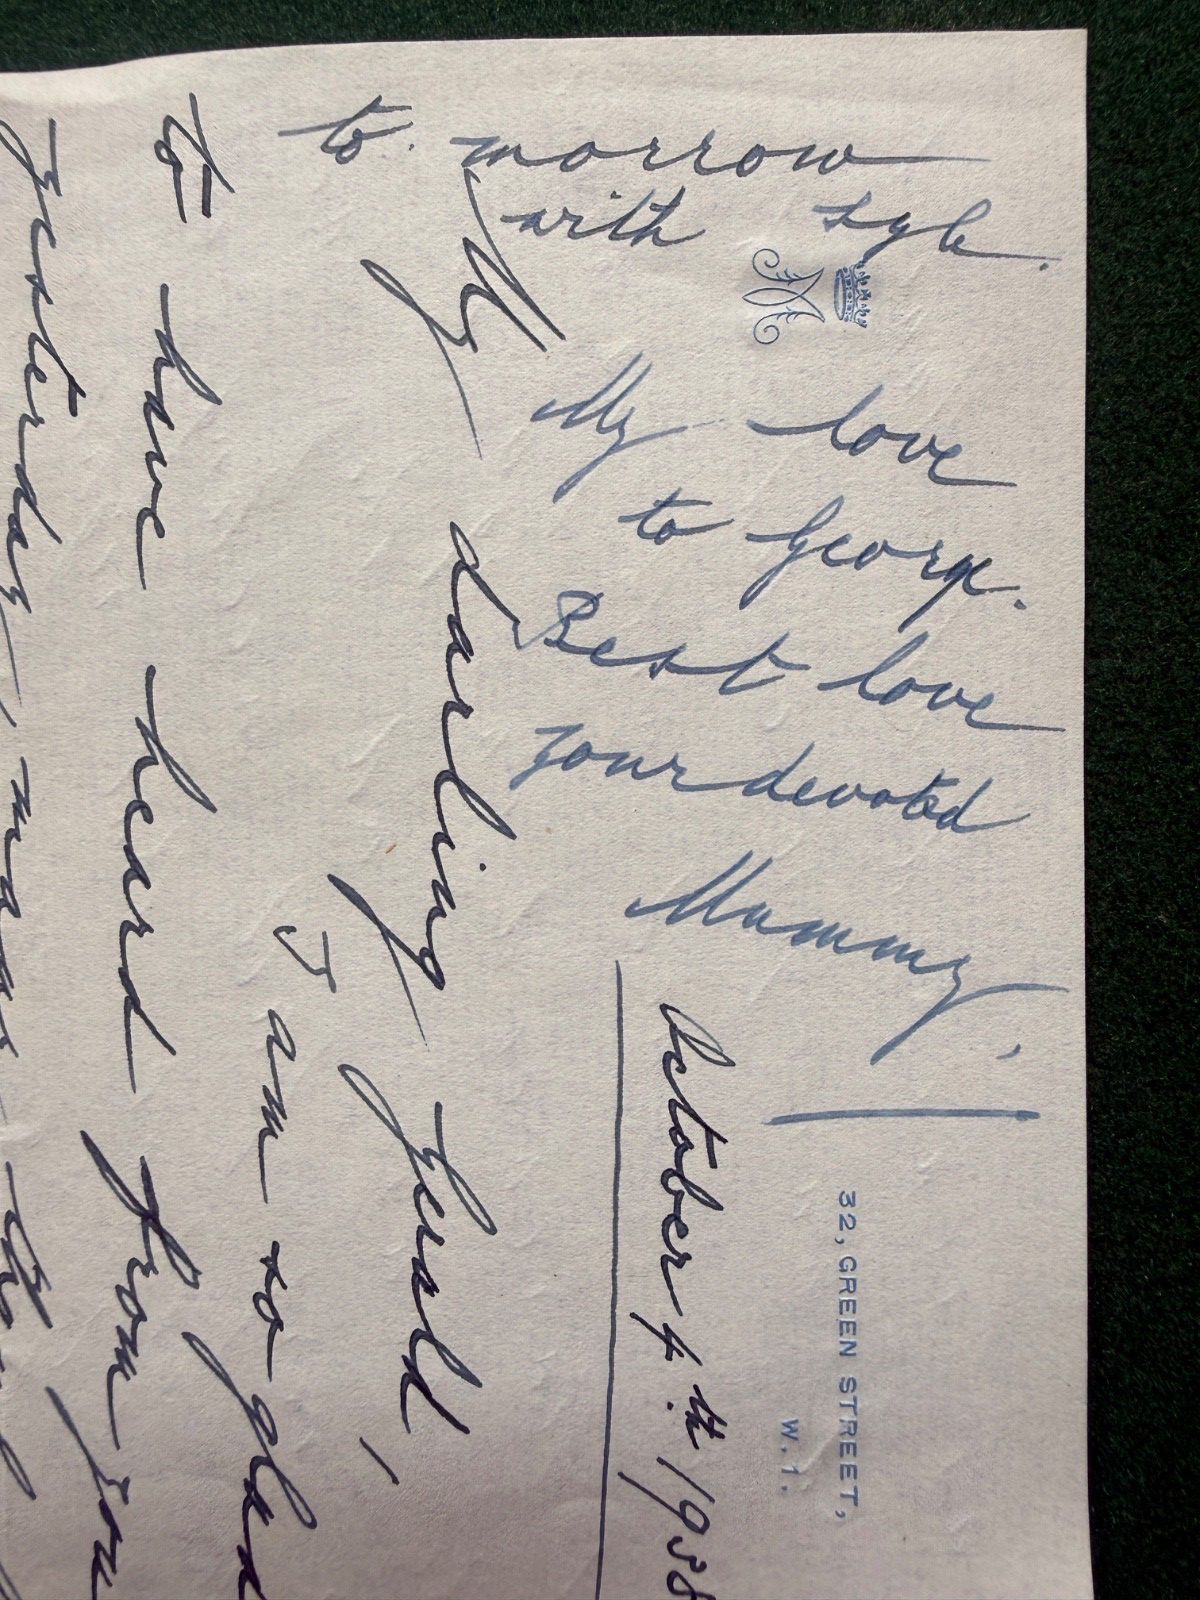 32, GREEN STREET,
W.1.
October 4th 1938
My darling Gerald,
I am so glad
to have heard from you
yesterday,
to-morrow
with Syb.
My love
to George.
Best love
your devoted
Mummy.